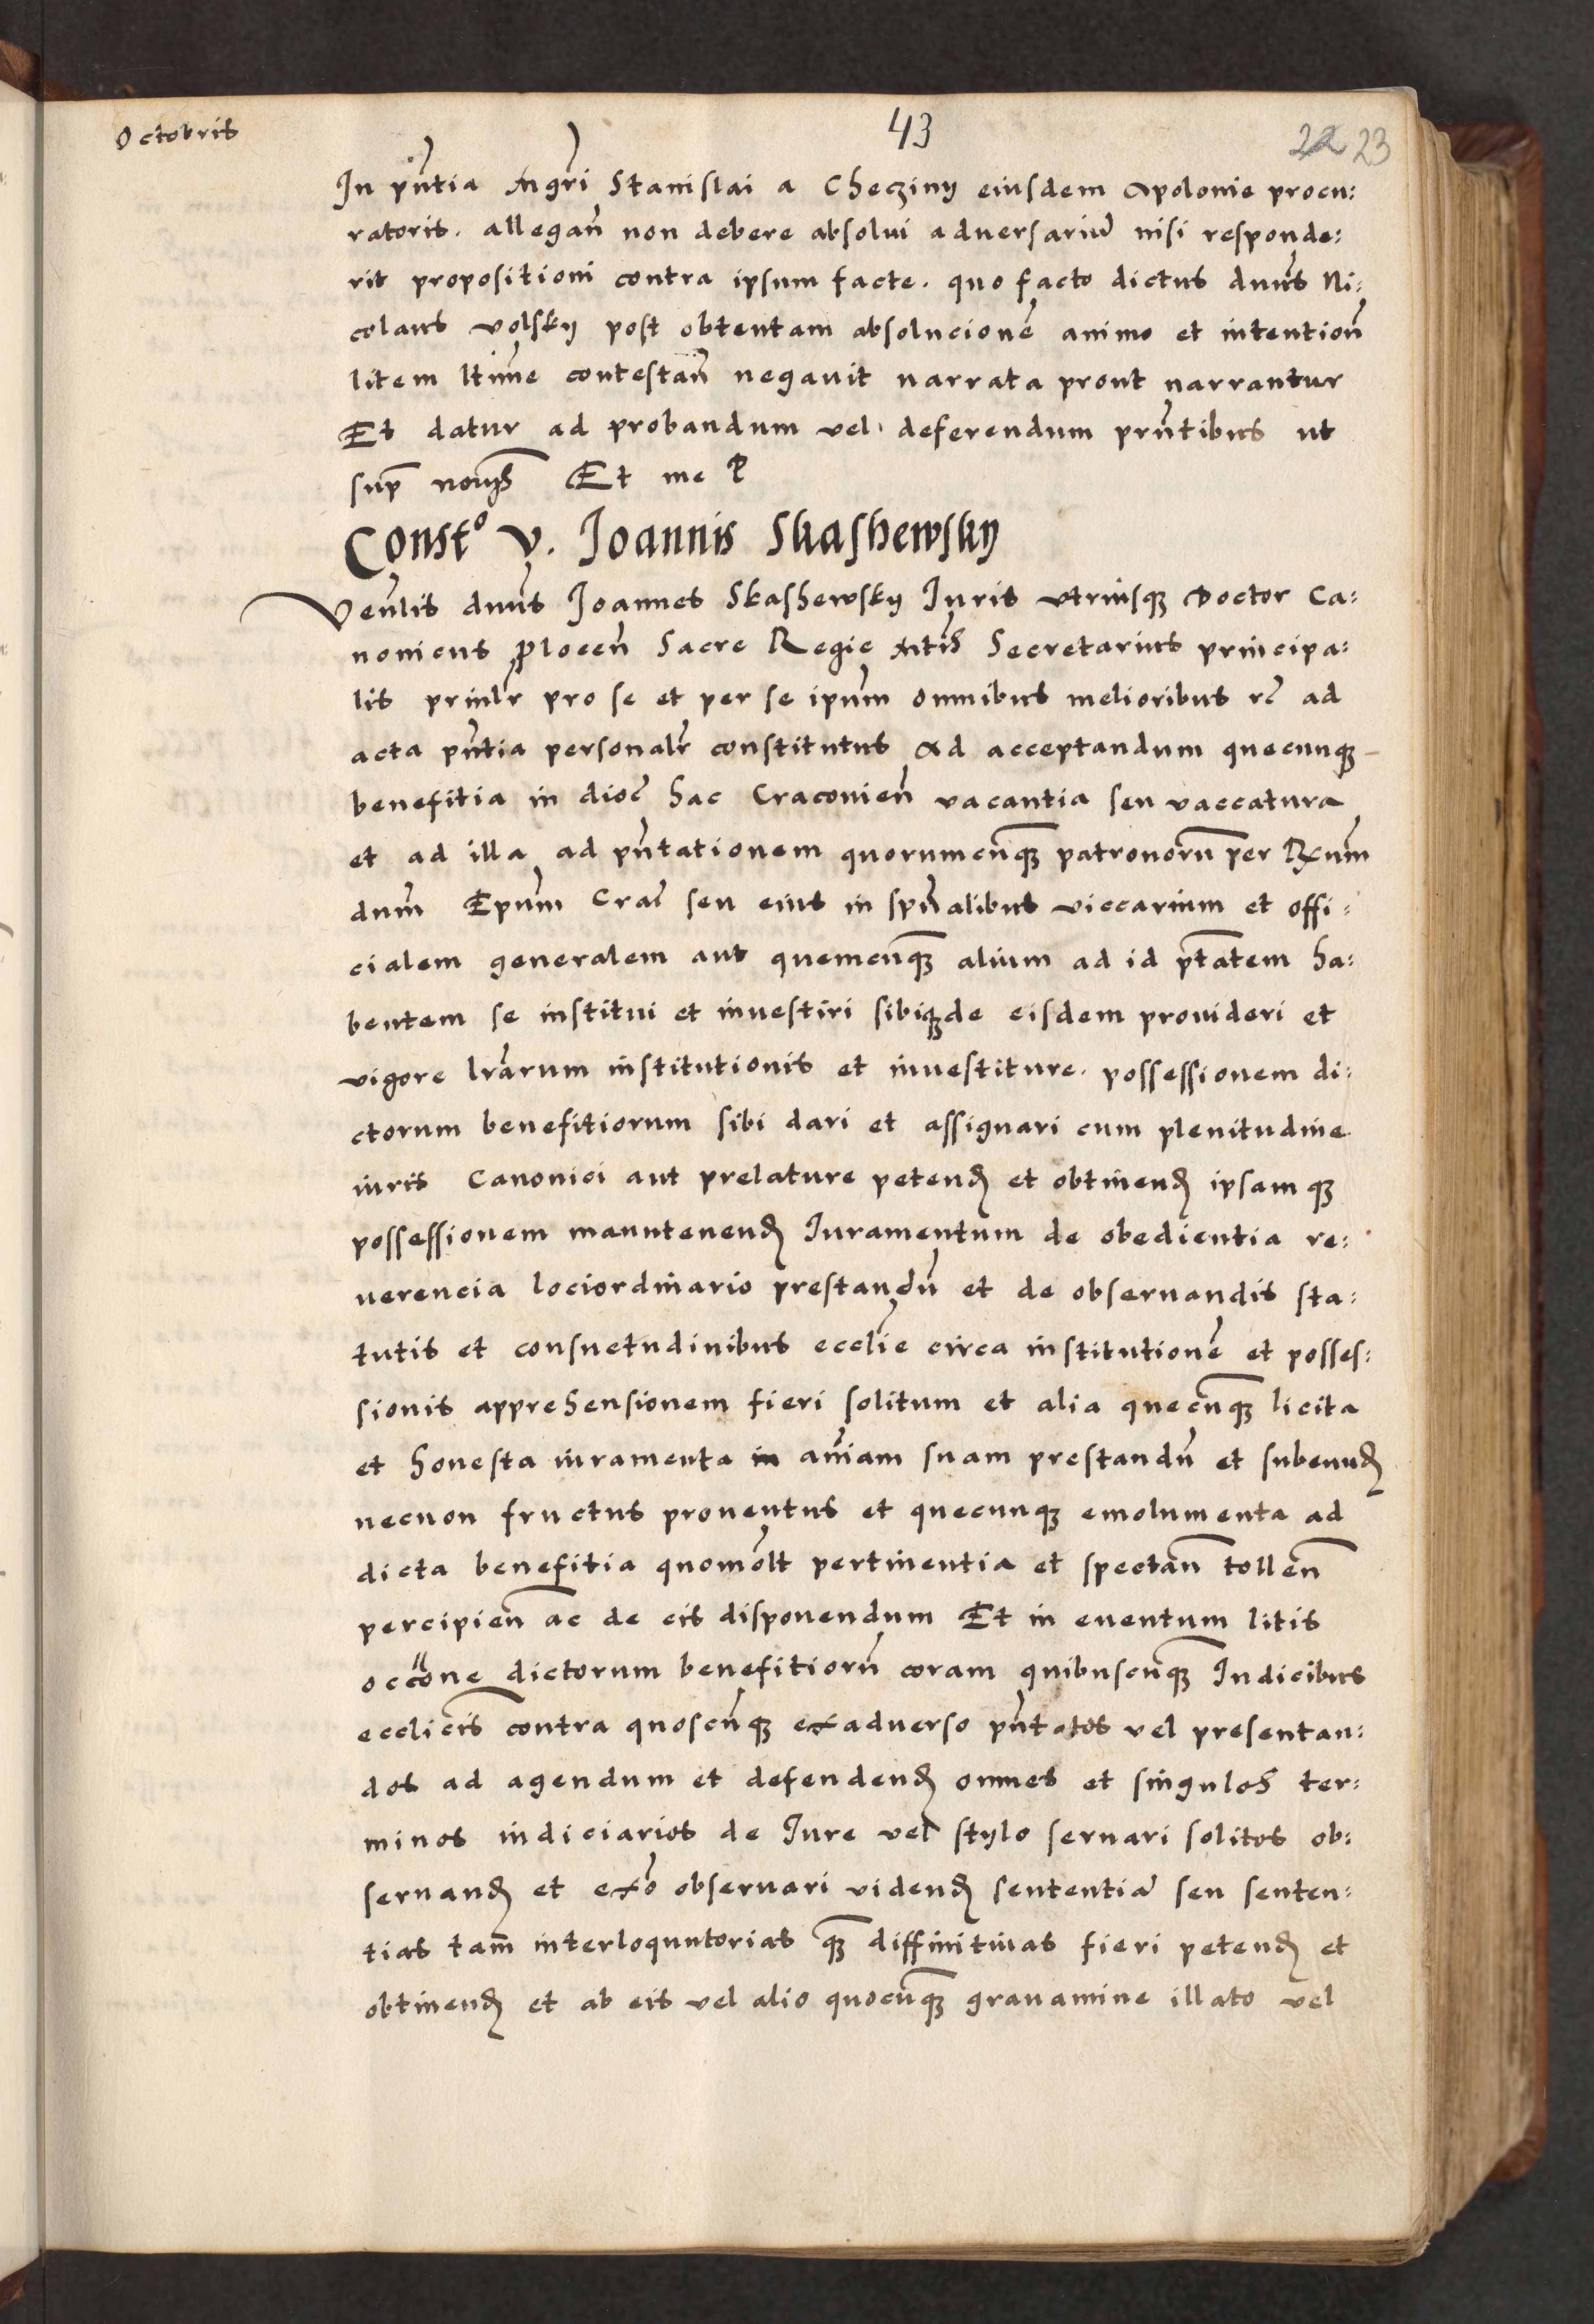 Octobris
43
22 23
In pñtia Mgri Stanislai a Checziny eiusdem Apolonie procu:
ratoris. allegañ non debere absolui adversariũ nisi responde:
rit propositioni contra ipsum facte. quo facto dictus dnus Ni:
colaus volsky post obtentam absolucionẽ animo et intentioñ
litem ltime contestañ negauit narrata prout narrantur
Et datur ad probandum vel deferendum prñtibus ut
sup̃ Et me P
Constº v. Joannis Skashewsky
Veñlis dnus Joannes Skashewsky Juris vtriusqꝫ Doctor Ca:
nonicus Ploceñ Sacre Regie Mtis Secretarius principa:
lis prinlr pro se et per se ipum omnibus melioribus rc ad
acta pñtia personalr constitutus Ad acceptandum quecunqꝫ
benefitia in dioc hac Cracovieñ vacantia seu vaccatura
et ad illa ad pñtationem quorumcũqꝫ patronorũ per Rxum
dum Epum Crac seu eius in spũalibus viccarium et offi:
cialem generalem aut quemcũqꝫ alium ad id ptãtem ha:
bentem se institui et inuestiri sibiqꝫ de eisdem prouideri et
vigore lrarum institutionis et inuestiture. possessionem di:
ctorum benefitiorum sibi dari et assignari cum plenitudine
iuris Canonici aut prelature petendꝫ et obtinendꝫ ipsamqꝫ
possessionem manutenendꝫ Iuramentum de obedientia re:
uerencia lociordinario prestandũ et de obseruandis sta:
tutis et consuetudinibus ecclie circa institutionẽ et posses:
sionis apprehensionem fieri solitum et alia quecũqꝫ licita
et honesta iuramenta in añiam suam prestandũ et subeundꝫ
necnon fructus prouentus et quecunqꝫ emolumenta ad
dicta benefitia quomolt pertinentia et spectañ tolleñ
percipieñ ac de eis disponendum Et in euentum litis
occõne dictorum benefitiorũ coram quibuscũqꝫ Iudicibus
ecclicis contra quoscũqꝫ exadverso pñtatos vel presentan:
dos ad agendum et defendendꝫ omnes et singulos ter:
minos iudiciarios de Iure vel stylo seruari solitos ob:
seruandꝫ et exõ obseruari videndꝫ sententiã seu senten:
tias tam̃ interloquutorias qꝫ̃ diffinitiuas fieri petendꝫ et
obtinendꝫ et ab eis vel alio quocũqꝫ grauamine illato vel